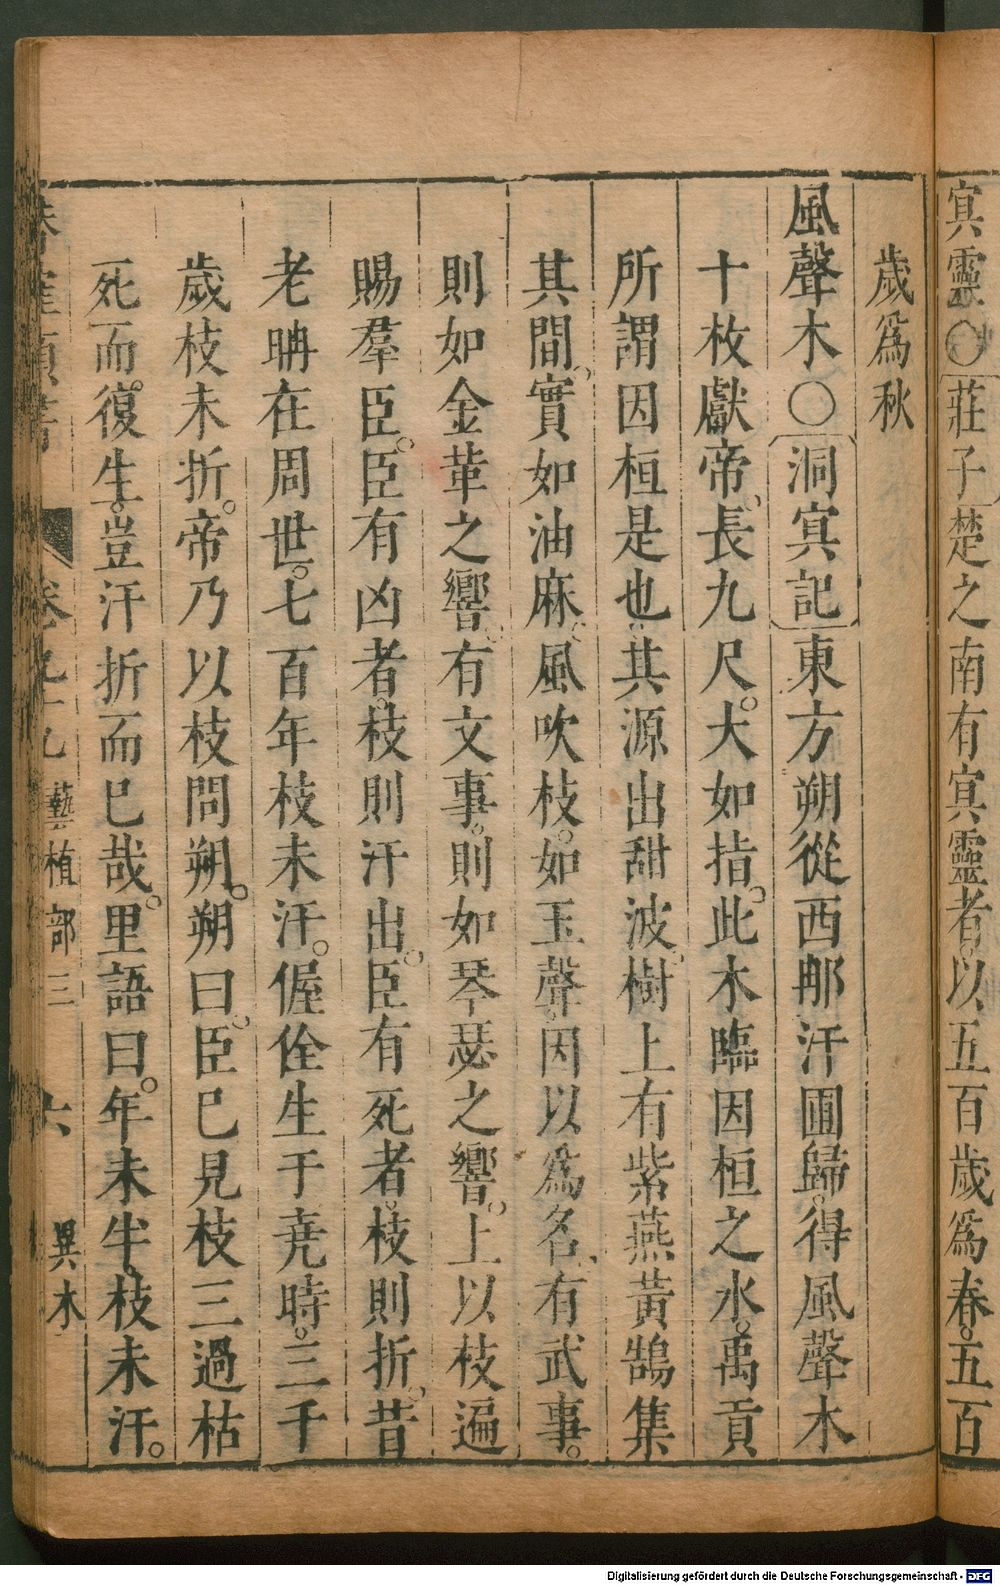 㝠靈○莊子楚之南有㝠靈者以五百歲爲春五百
歲爲秋
風聲木○洞㝠記東方朔從西𨙻汗國歸得風聲木
十枚獻帝長九尺大如指此木臨因桓之水禹貢
所謂因桓是也其源出甜波樹上有紫燕黃鵠集
其間實如油麻風吹枝如玉聲因以爲名有武事
則如金革之響有文事則如琴瑟之響上以枝遍
賜羣臣臣有凶者枝則汗出臣有死者枝則折昔
老聃在周世七百年枝未汗偓佺生于堯時三千
歲枝未折帝乃以枝問朔朔曰臣已見枝三過枯
死而復生豈汗折而已哉里語曰年未半枝未汗
卷 藝植部三 六 異木
Digitalisierung gefördert durch die Deutsche Forschungsgemeinschaft - DFG